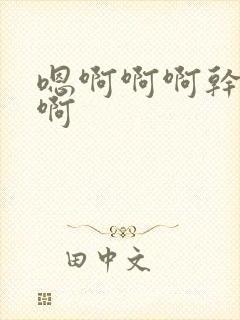 嗯啊啊啊幹
啊
田中文